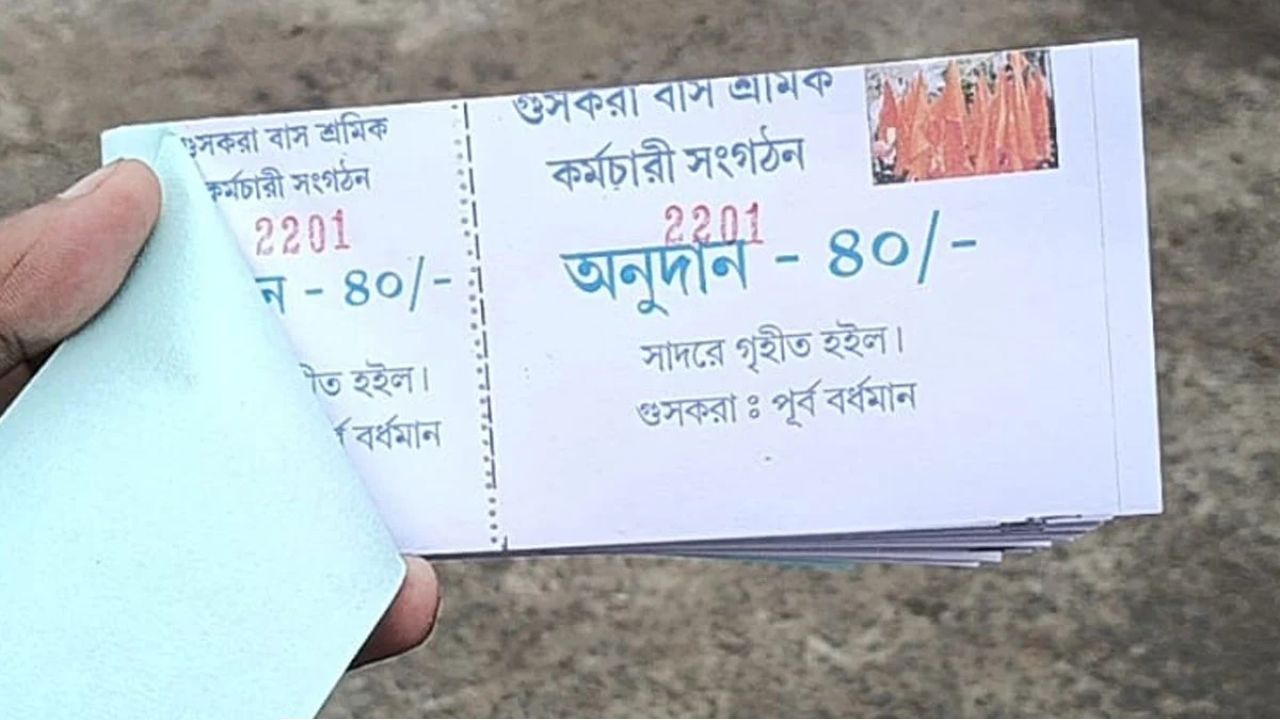 গুসকরা বাস শ্রমিক
কর্মচারী সংগঠন
2201
ন - 80/-
হইল।
বর্ধমান
গুসকরা বাস শ্রমিক
কর্মচারী সংগঠন
2201
অনুদান - 80/-
সাদরে গৃহীত হইল।
গুসকরা ঃ পূর্ব বর্ধমান